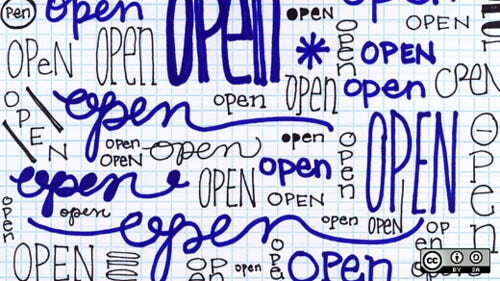 open
open
OPEN
OPEN
OPEN
open
OPEN
open
open
open
OPEN
open
open
open
OPEN
open
open
OPEN
open
open
open
OPEN
OPEN
open
OPEN
open
open
open
open
open
OPEN
open
OPEN
open
open
open
OPEN
cc
BY SA